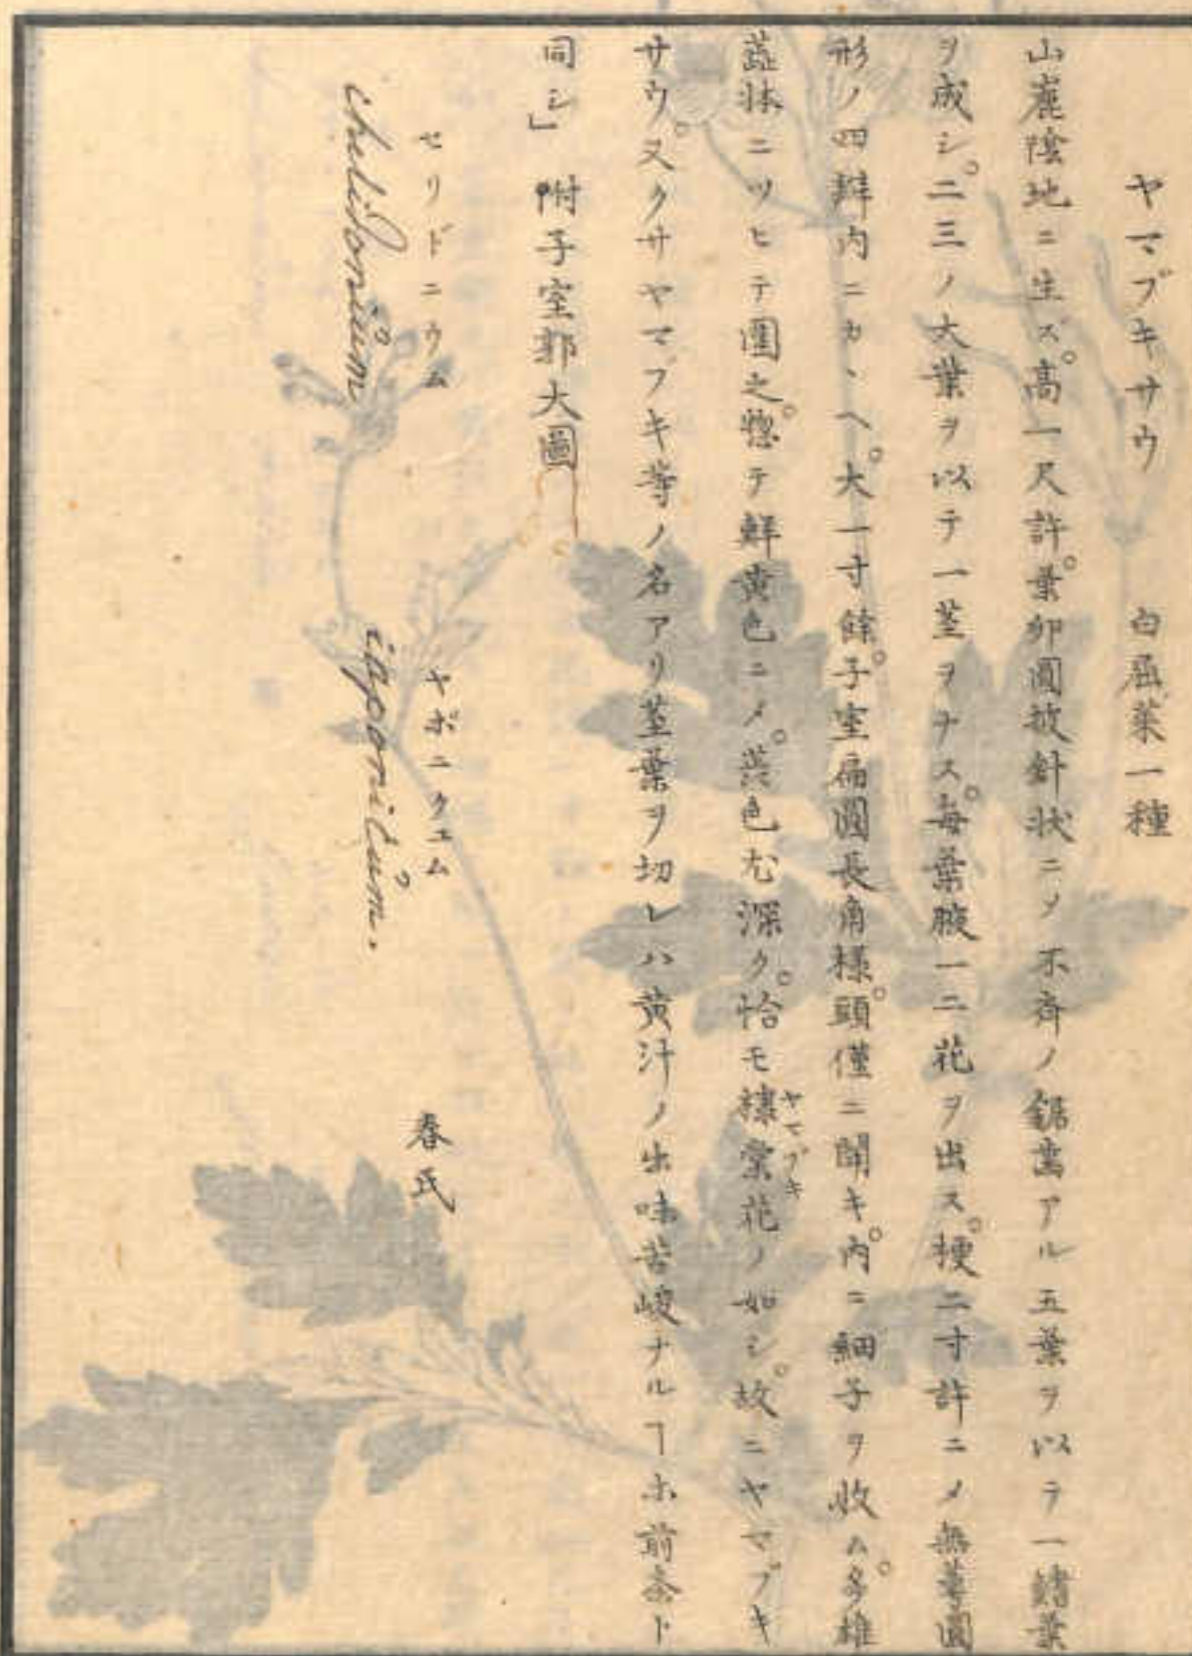 ヤマブキサウ 白屈菜一種
山麓陰地ニ生ズ。高一尺許。葉卵圓披針狀ニメ不齊ノ鋸齒アル五葉ヲ以テ一鰭葉
ヲ成シ。二三ノ大葉ヲ以テ一莖ヲナス。每葉腋一二花ヲ出ス。梗二寸許ニメ無萼圓
形ノ四瓣内ニカヽヘ。大一寸餘。子室扁圓長角樣。頭僅ニ開キ。内ニ細子ヲ收ム。多雄
蕋体ニツヒテ圍之。惣テ鮮黄色ニメ。其色尤深ク。恰モ棣棠花ノ如シ。故ニヤマブキ
ヤマブキ
サウ。又クサヤマブキ等ノ名アリ莖葉ヲ切レハ黄汁ノ出味苦峻ナルヿホ前条ト
同シ」 附子室郭大圖
セリドニウム ヤポニクユム
chelidonium iaponicum.
春氏